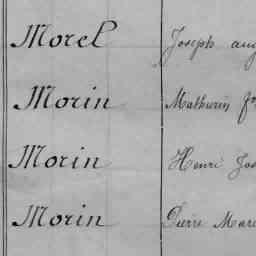 Morel Joseph aug
Morin Mathurin
Morin Henri Jos
Morin Pierre Marie